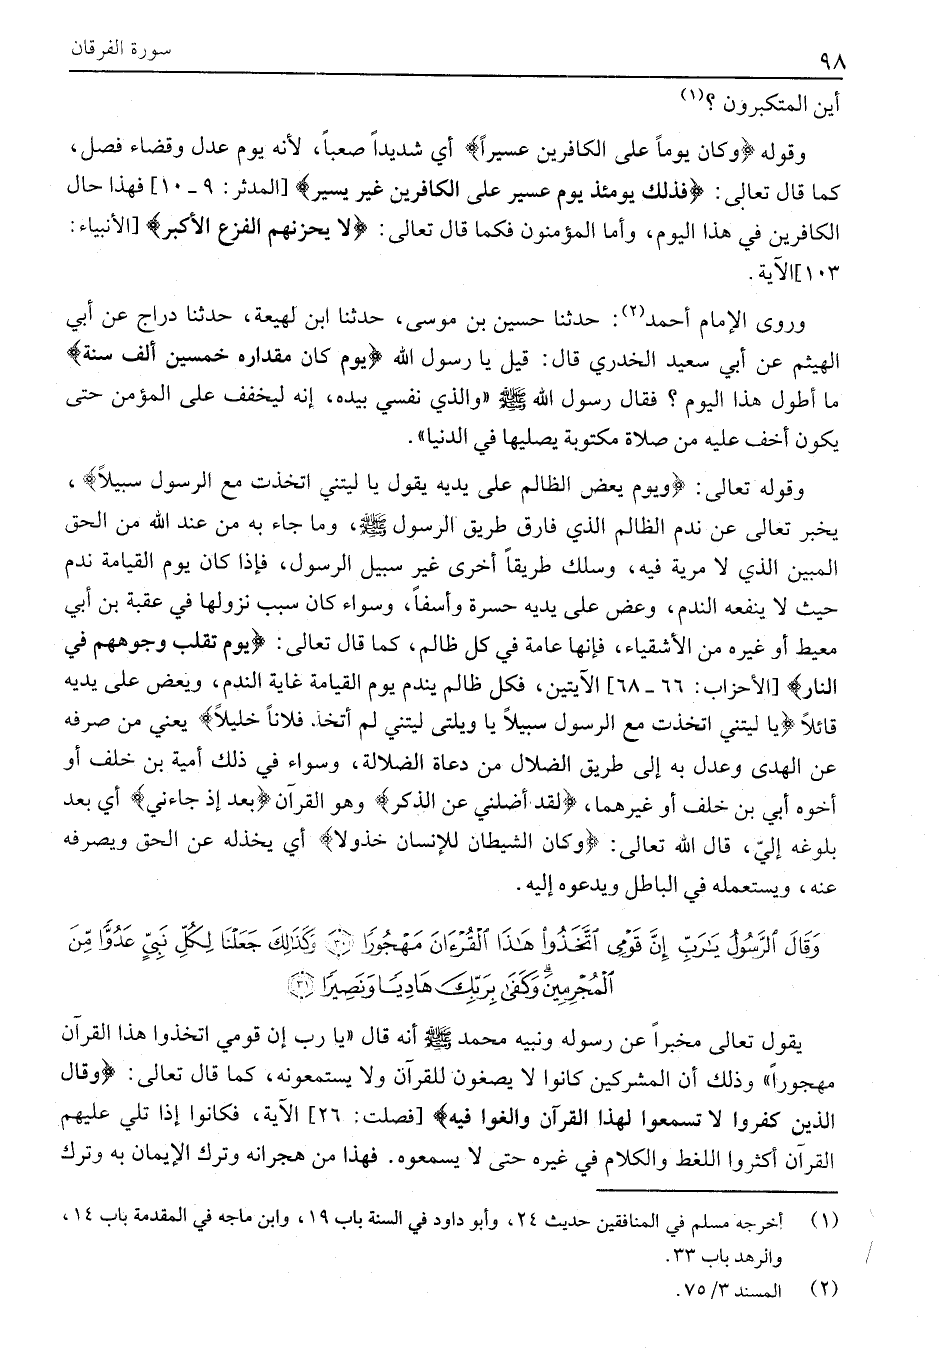 سورة الفرقان
٩٨
أين المتكبرون ؟(١)
وقوله ﴿وكان يوماً على الكافرين عسيراً﴾ أي شديداً صعباً، لأنه يوم عدل وقضاء فصل،
كما قال تعالى: ﴿فذلك يومئذ يوم عسير على الكافرين غير يسير﴾ [المدثر: ٩ ـ ١٠] فهذا حال
الكافرين في هذا اليوم، وأما المؤمنون فكما قال تعالى: ﴿لا يحزنهم الفزع الأكبر﴾ [الأنبياء:
١٠٣]الآية.
وروى الإمام أحمد(٢): حدثنا حسين بن موسى، حدثنا ابن لهيعة، حدثنا دراج عن أبي
الهيثم عن أبي سعيد الخدري قال: قيل يا رسول الله ﴿يوم كان مقداره خمسين ألف سنة﴾
ما أطول هذا اليوم ؟ فقال رسول الله ﷺ «والذي نفسي بيده، إنه ليخفف على المؤمن حتى
يكون أخف عليه من صلاة مكتوبة يصليها في الدنيا».
وقوله تعالى: ﴿ويوم يعض الظالم على يديه يقول يا ليتني اتخذت مع الرسول سبيلاً﴾،
يخبر تعالى عن ندم الظالم الذي فارق طريق الرسول ﷺ، وما جاء به من عند الله من الحق
المبين الذي لا مرية فيه، وسلك طريقاً أخرى غير سبيل الرسول، فإذا كان يوم القيامة ندم
حيث لا ينفعه الندم، وعض على يديه حسرة وأسفاً، وسواء كان سبب نزولها في عقبة بن أبي
معيط أو غيره من الأشقياء، فإنها عامة في كل ظالم، كما قال تعالى: ﴿يوم تقلب وجوههم في
النار﴾ [الأحزاب: ٦٦ ـ ٦٨] الآيتين، فكل ظالم يندم يوم القيامة غاية الندم، ويعض على يديه
قائلاً ﴿يا ليتني اتخذت مع الرسول سبيلاً يا ويلتى ليتني لم أتخذ فلاناً خليلاً﴾ يعني من صرفه
عن الهدى وعدل به إلى طريق الضلال من دعاة الضلالة، وسواء في ذلك أمية بن خلف أو
أخوه أبي بن خلف أو غيرهما، ﴿لقد أضلني عن الذكر﴾ وهو القرآن ﴿بعد إذ جاءني﴾ أي بعد
بلوغه إليّ، قال الله تعالى: ﴿وكان الشيطان للإنسان خذولا﴾ أي يخذله عن الحق ويصرفه
عنه، ويستعمله في الباطل ويدعوه إليه.
وَقَالَ ٱلرَّسُولُ يَٰرَبِّ إِنَّ قَوْمِى ٱتَّخَذُوا۟ هَٰذَا ٱلْقُرْءَانَ مَهْجُورًا ﴿٣٠﴾ وَكَذَٰلِكَ جَعَلْنَا لِكُلِّ نَبِىٍّ عَدُوًّا مِّنَ
ٱلْمُجْرِمِينَ ۗ وَكَفَىٰ بِرَبِّكَ هَادِيًا وَنَصِيرًا ﴿٣١﴾
يقول تعالى مخبراً عن رسوله ونبيه محمد ﷺ أنه قال «يا رب إن قومي اتخذوا هذا القرآن
مهجوراً» وذلك أن المشركين كانوا لا يصغون للقرآن ولا يستمعونه، كما قال تعالى: ﴿وقال
الذين كفروا لا تسمعوا لهذا القرآن والغوا فيه﴾ [فصلت: ٢٦] الآية، فكانوا إذا تلي عليهم
القرآن أكثروا اللغط والكلام في غيره حتى لا يسمعوه. فهذا من هجرانه وترك الإيمان به وترك
(١) أخرجه مسلم في المنافقين حديث ٢٤، وأبو داود في السنة باب ١٩، وابن ماجه في المقدمة باب ١٤،
والزهد باب ٣٣.
(٢) المسند ٣/ ٧٥.